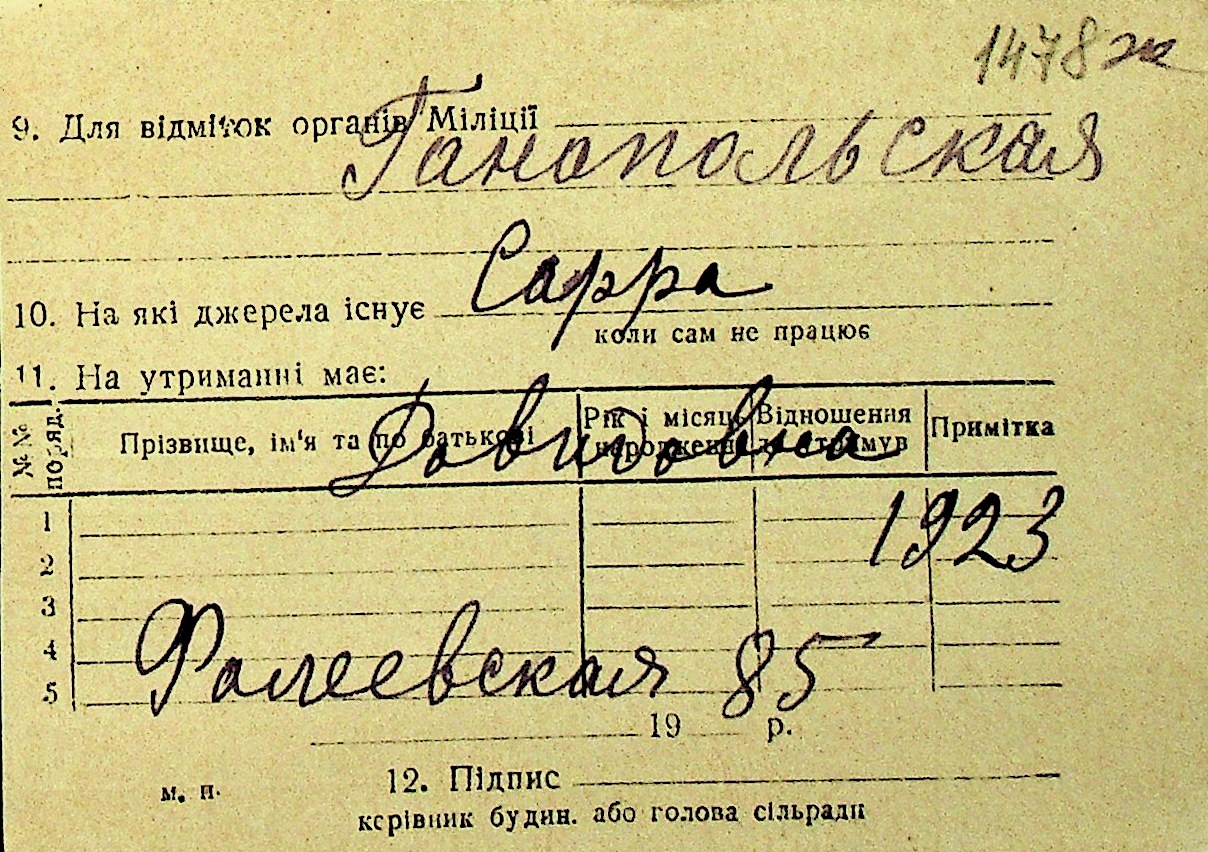 1478ж
9. Для відміток органів Міліції
Ганопольская
Сарра
10. На які джерела існує
коли сам не працює
11. На утриманні має:
Давидовна
№№ поряд. Прізвище, ім'я та по батькові Рік і місяць народження Відношення до утримув Примітка
1
1923
2
3
4
Фалеевская 85
5
19 р.
м. п. 12. Підпис
керівник будин. або голова сільради